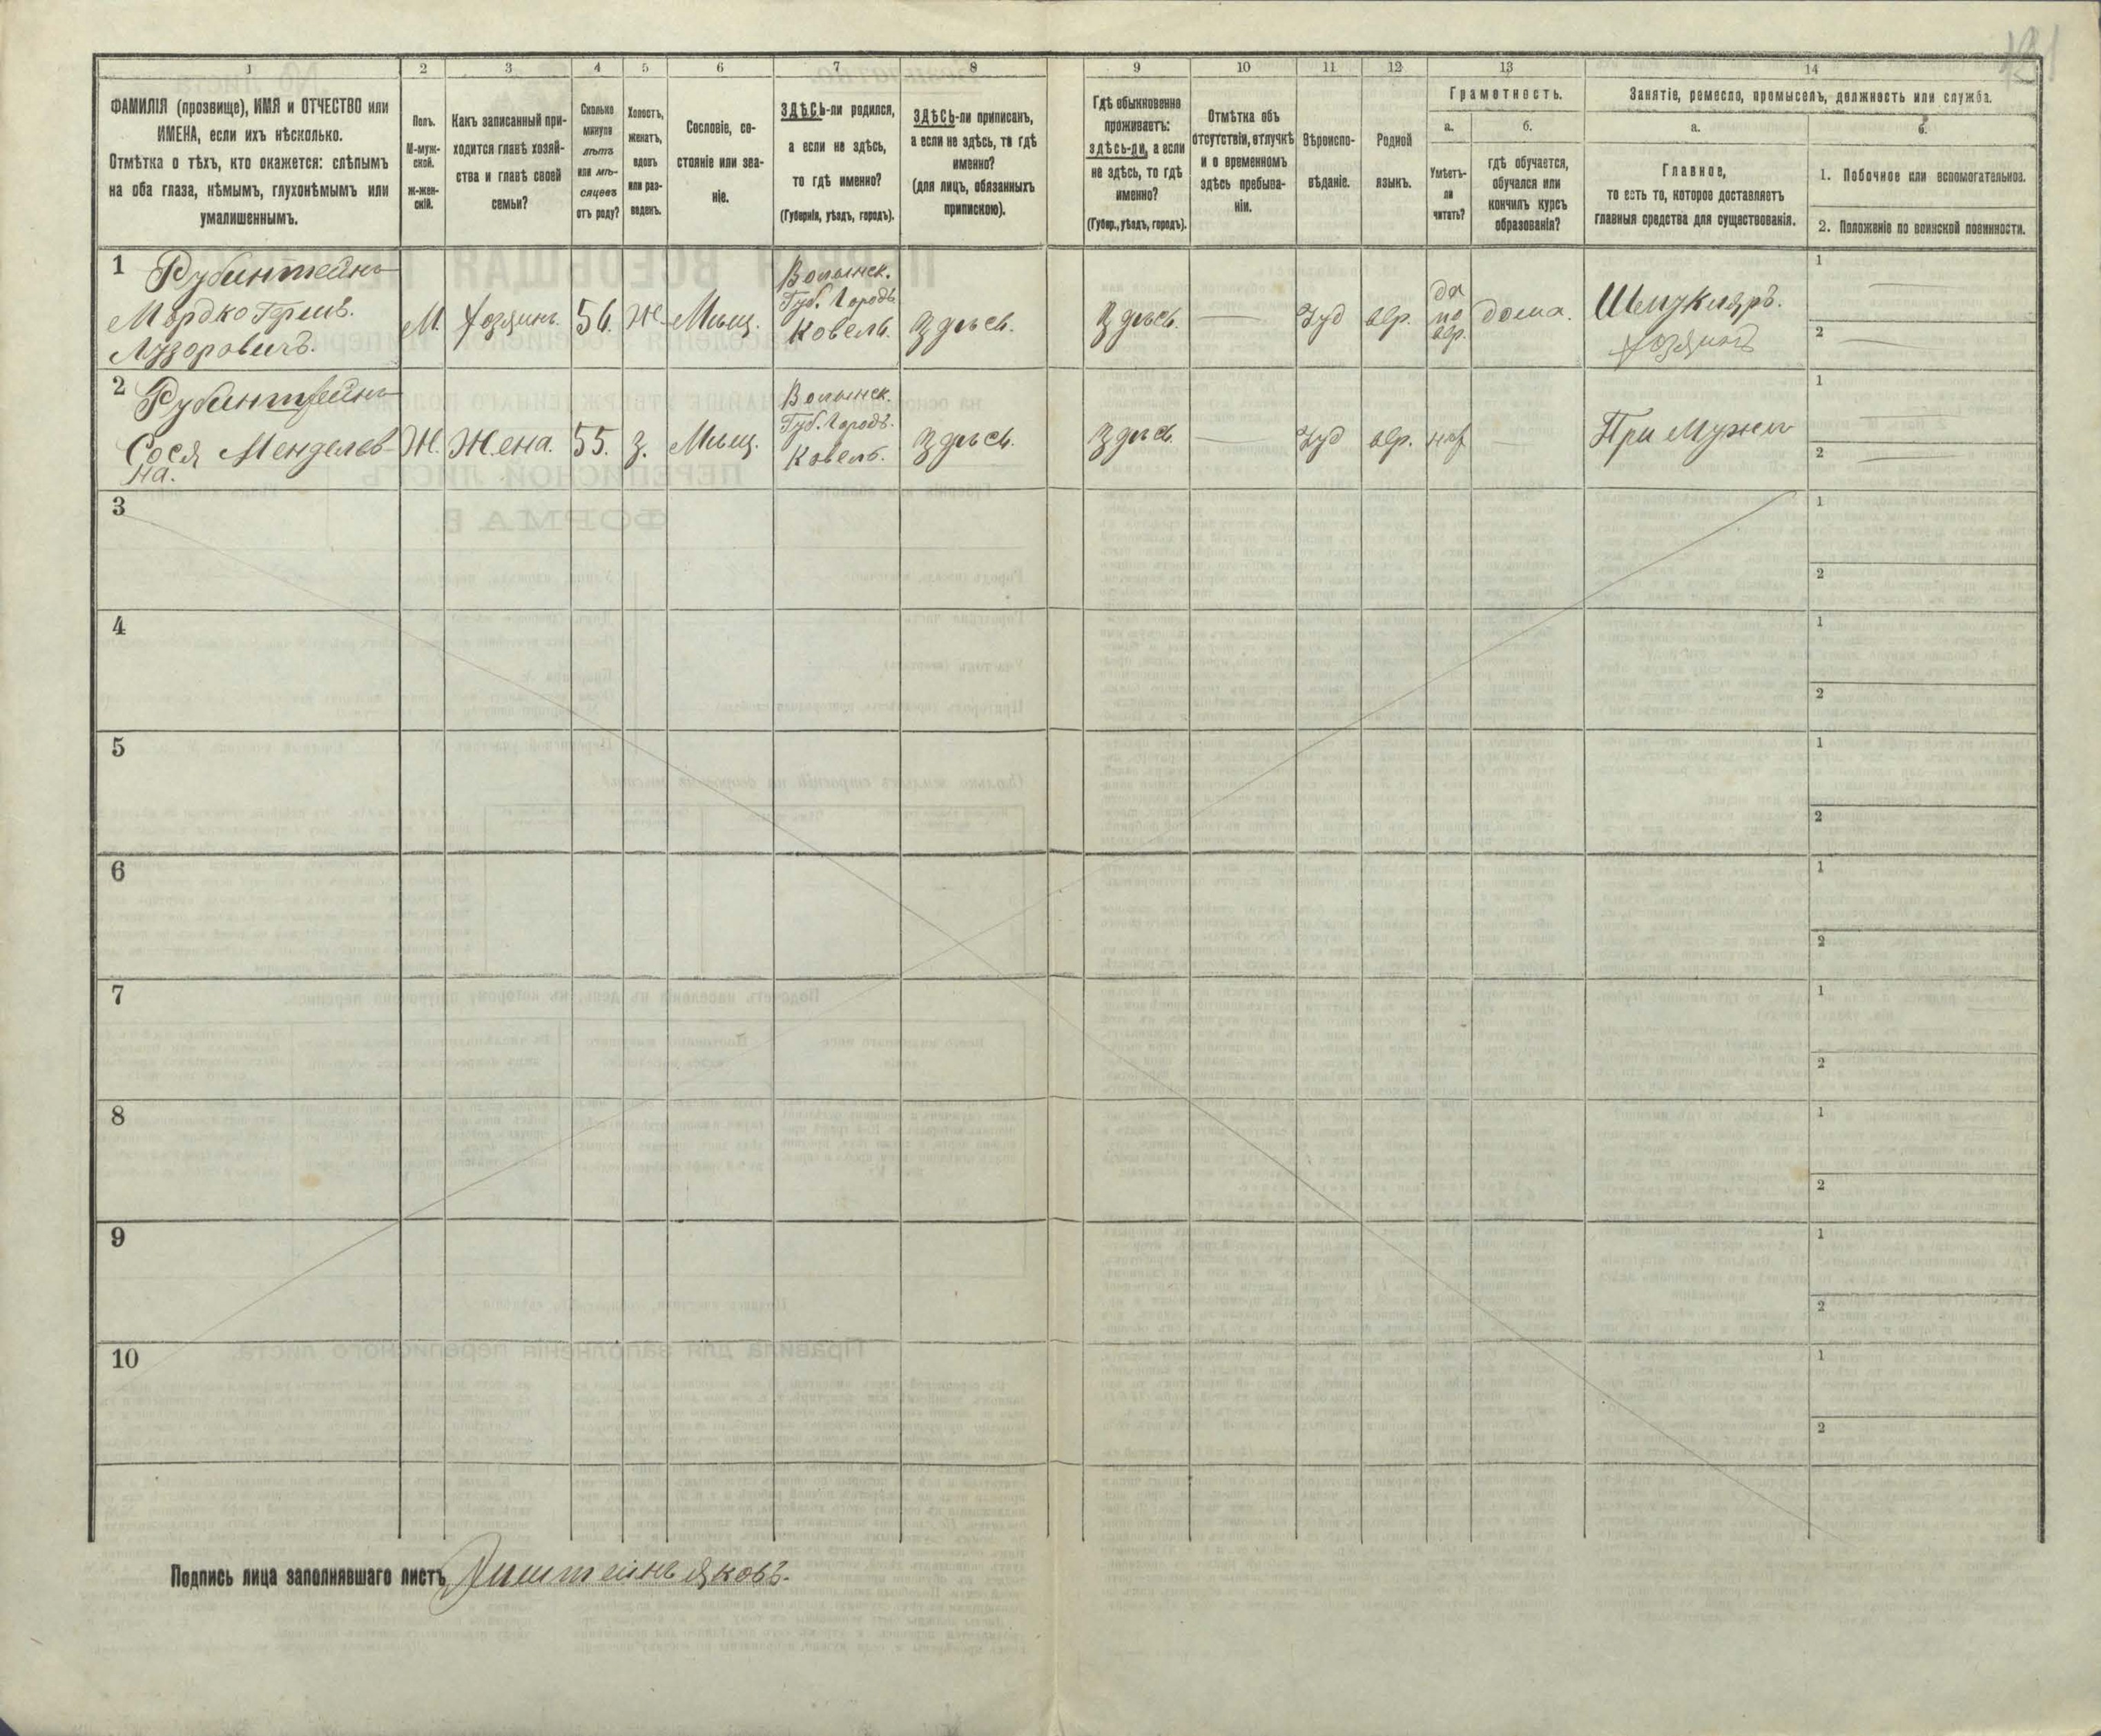 1
2
3
4
5
6
7
8
9
10
11
12
13
14
ФАМИЛІЯ (прозвище), ИМЯ и ОТЧЕСТВО или
ИМЕНА, если ихъ нѣсколько.
Отмѣтка о тѣхъ, кто окажется: слѣпымъ
на оба глаза, нѣмымъ, глухонѣмымъ или
умалишеннымъ.
Полъ.
М-муж-
ской.
Ж-жен-
скій.
Какъ записанный при-
ходится главѣ хозяй-
ства и главѣ своей
семьи?
Сколько
минуло
лѣтъ
или мѣ-
сяцевъ
отъ роду?
Холостъ,
женатъ,
вдовъ
или раз-
веденъ.
Сословіе, со-
стояніе или зва-
ніе.
ЗДѢСЬ-ли родился,
а если не здѣсь,
то гдѣ именно?
(Губернія, уѣздъ, городъ).
ЗДѢСЬ-ли приписанъ,
а если не здѣсь, то гдѣ
именно?
(для лицъ, обязанныхъ
припискою).
Гдѣ обыкновенно
проживаетъ:
здѣсь-ли, а если
не здѣсь, то гдѣ
именно?
(Губер., уѣздъ, городъ).
Отмѣтка объ
отсутствіи, отлучкѣ
и о временномъ
здѣсь пребыва-
ніи.
Вѣроиспо-
вѣданіе.
Родной
языкъ.
Грамотность.
а.
Умѣетъ-
ли
читать?
б.
гдѣ обучается,
обучался или
кончилъ курсъ
образованія?
Занятіе, ремесло, промыселъ, должность или служба.
а.
Главное,
то есть то, которое доставляетъ
главныя средства для существованія.
б.
1. Побочное или вспомогательное.
2. Положеніе по воинской повинности.
1 Рубинштейнъ
Мордко Герш.
Лузоровичъ.
М.
Хозяинъ.
56.
Ж.
Мѣщ.
Волынск.
Губ. Городъ
Ковель.
Здѣсь.
Здѣсь.
—
Іуд
евр.
да
по
евр.
дома.
Шмуклярь.
хозяинъ
1 —
2 —
2 Рубинштейнъ
Сося Менделев-
на.
Ж.
Жена.
55.
З.
Мѣщ.
Волынск.
Губ. Городъ.
Ковель.
Здѣсь.
Здѣсь.
—
Іуд
евр.
нѣт
—
При Мужѣ
1 —
2 —
3
1
2
4
1
2
5
1
2
6
1
2
7
1
2
8
1
2
9
1
2
10
1
2
Подпись лица заполнявшаго листъ
Яковъ.